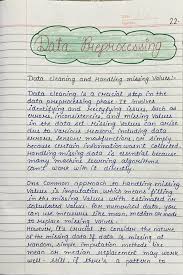 22-
Data Preprocessing
Data cleaning and Handling missing values:-
Data cleaning is a crucial step in the
data preprocessing phase. It involves
identifying and rectifying issues, such as
errors, inconsistencies, and missing values
in the data set. Missing values can arise
due to various reasons, including data
errors, sensor malfunction, or simply
because certain information wasn't collected.
Handling missing data is essential because
many machine learning algorithms
can't work with it directly.
One common approach to handling missing
values is imputation, which means filling
in the missing values with estimated or
calculated values. For numerical data, you
can use measures like mean, median or mode
to replace missing values.
However, it's crucial to consider the nature of
the missing data. If data is missing at
random, simple imputation methods like
mean or median replacement may work
well. still, if there's a pattern to